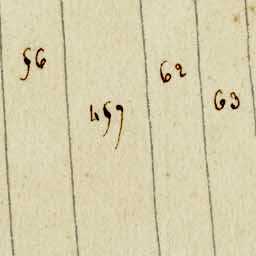 56
457
62
63